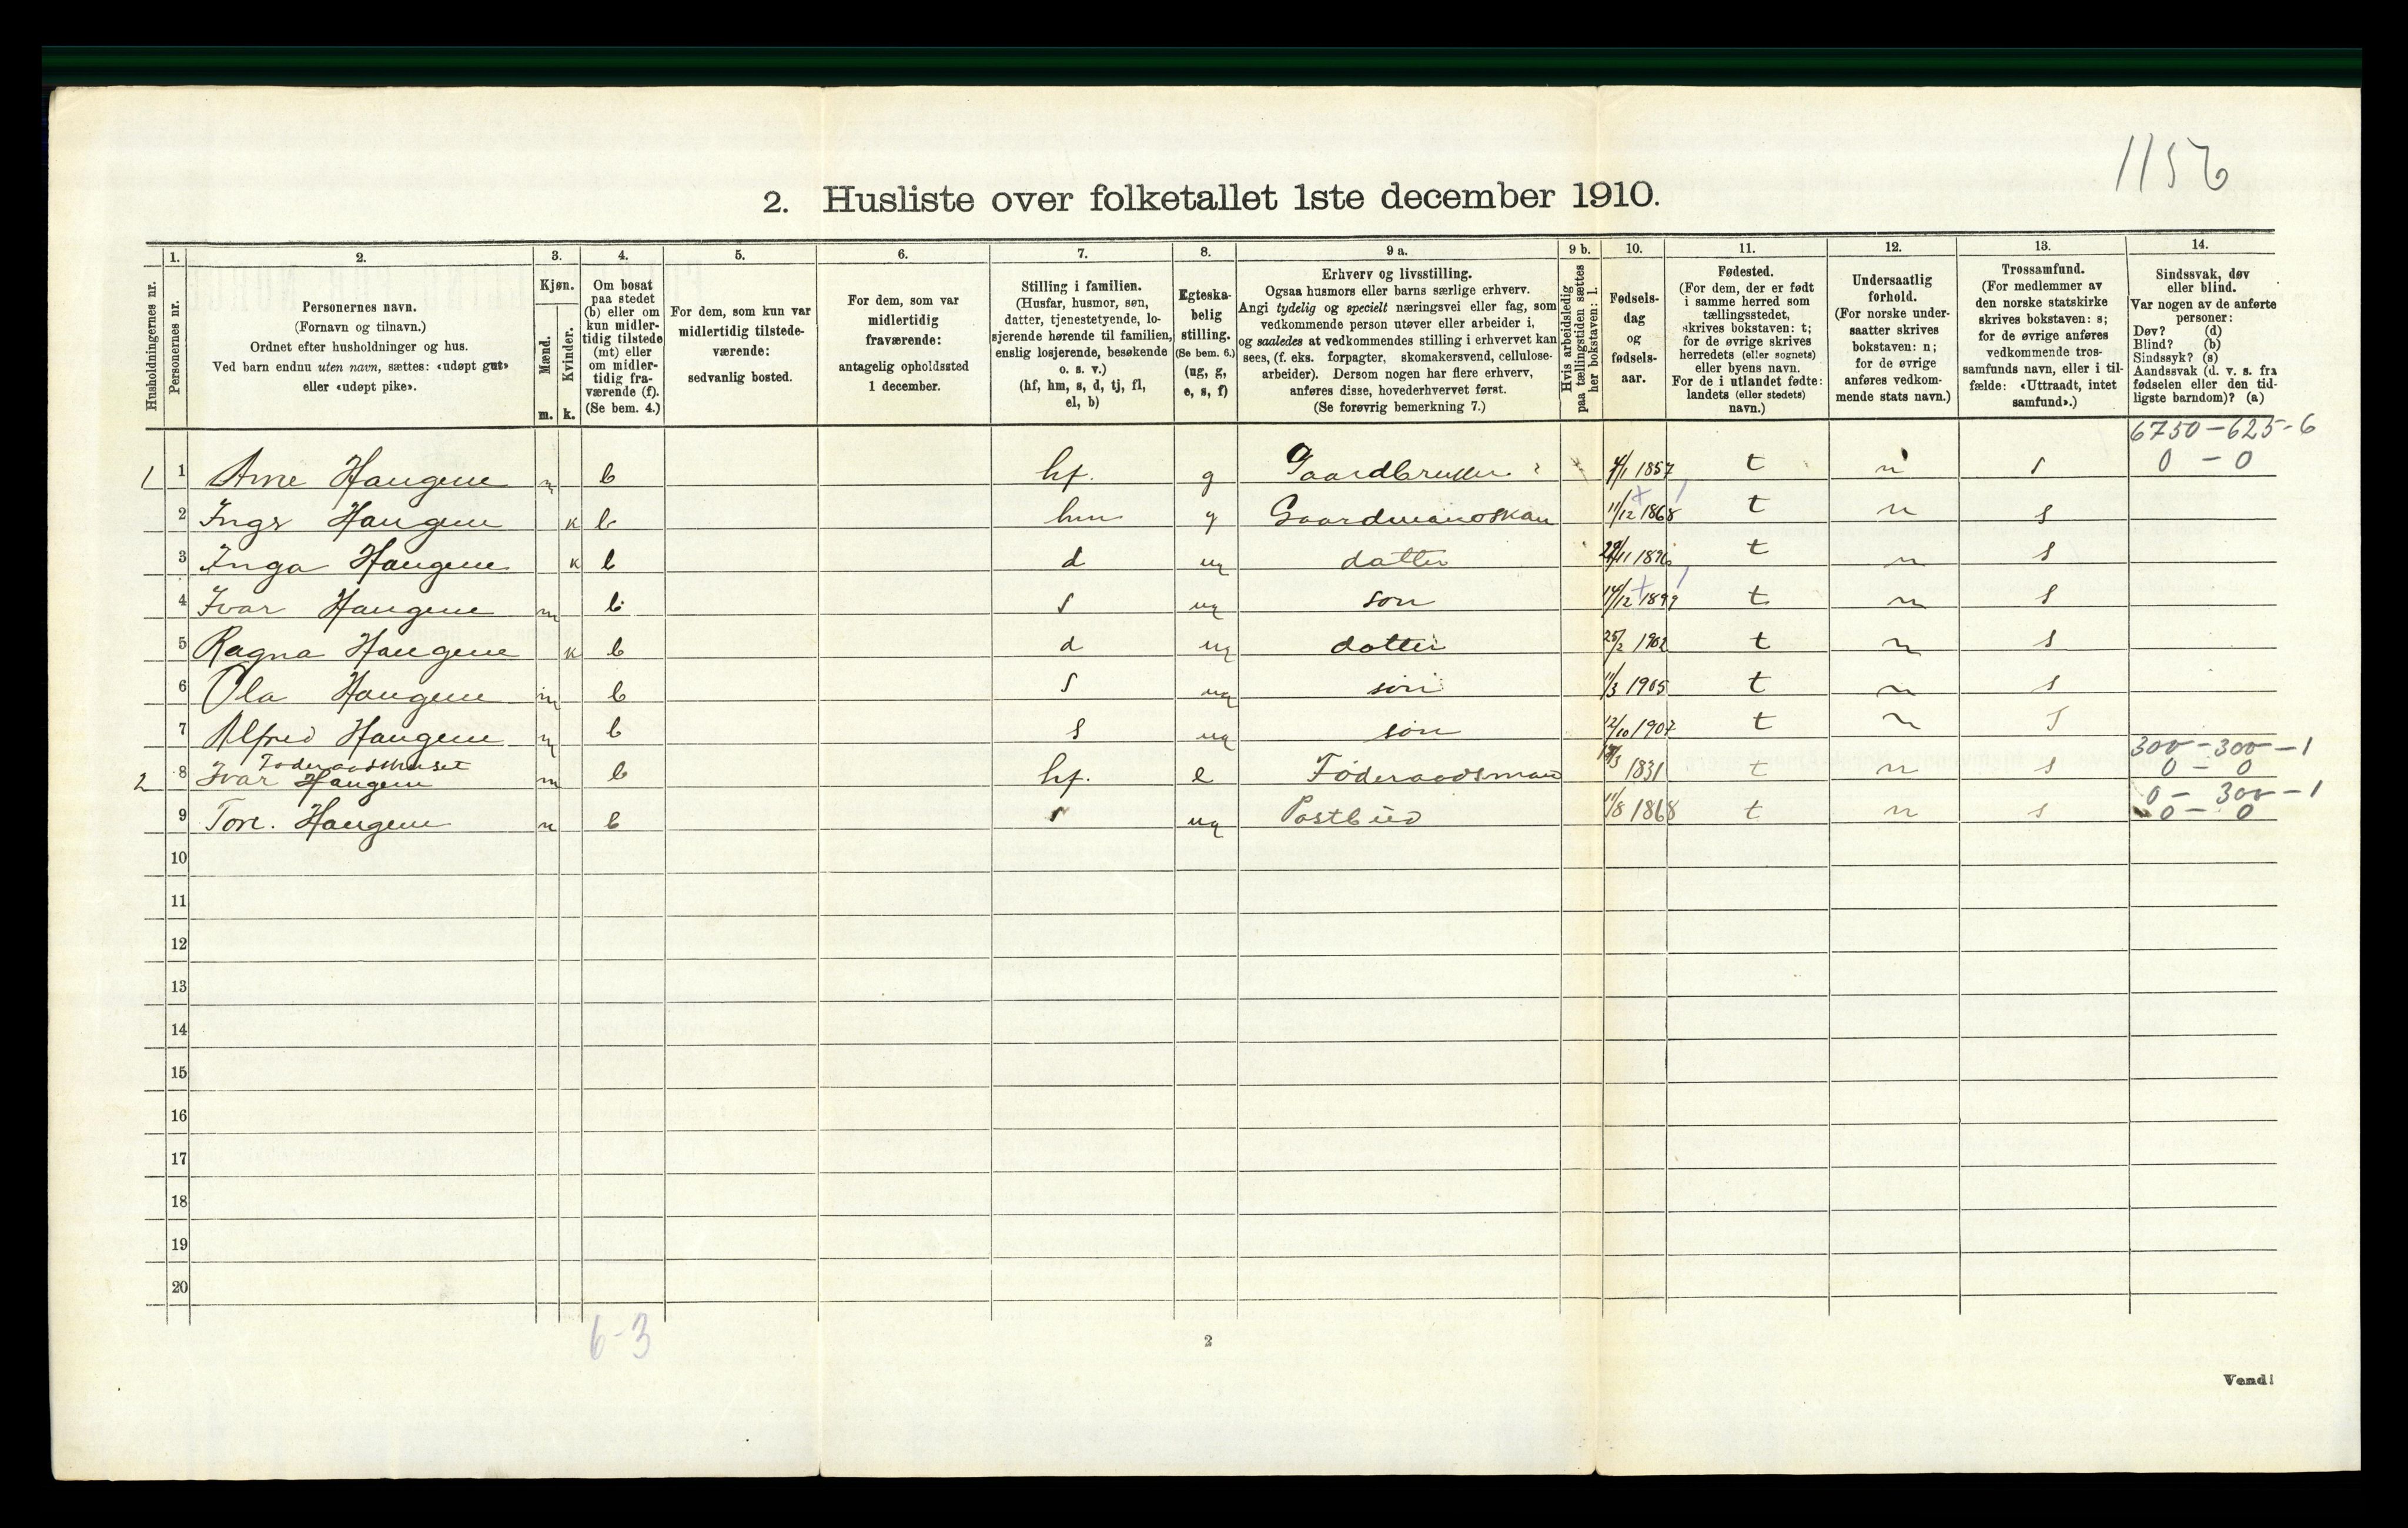 1156
2. Husliste over folketallet 1ste december 1910.
Husholdningernes nr.
1.
Personernes nr.
2.
Personernes navn.
(Fornavn og tilnavn.)
Ordnet efter husholdninger og hus.
Ved barn endnu uten navn, sættes: «udøpt gut»
eller «udøpt pike».
3.
Kjøn.
Mænd.
m.
Kvinder.
k.
4.
Om bosat
paa stedet
(b) eller om
kun midler-
tidig tilstede
(mt) eller
om midler-
tidig fra-
værende (f).
(Se bem. 4.)
5.
For dem, som kun var
midlertidig tilstede-
værende:
sedvanlig bosted.
6.
For dem, som var
midlertidig
fraværende:
antagelig opholdssted
1 december.
7.
Stilling i familien.
(Husfar, husmor, søn,
datter, tjenestetyende, lo-
sjerende hørende til familien,
enslig losjerende, besøkende
o. s. v.)
(hf, hm, s, d, tj, fl,
el, b)
8.
Egteska-
belig
stilling.
(Se bem. 6.)
(ug, g,
e, s, f)
9 a.
Erhverv og livsstilling.
Ogsaa husmors eller barns særlige erhverv.
Angi tydelig og specielt næringsvei eller fag, som
vedkommende person utøver eller arbeider i,
og saaledes at vedkommendes stilling i erhvervet kan
sees, (f. eks. forpagter, skomakersvend, cellulose-
arbeider). Dersom nogen har flere erhverv,
anføres disse, hovederhvervet først.
(Se forøvrig bemerkning 7.)
9 b.
Hvis arbeidsledig
paa tællingstiden sættes
her bokstaven: l.
10.
Fødsels-
dag
og
fødsels-
aar.
11.
Fødested.
(For dem, der er født
i samme herred som
tællingsstedet,
skrives bokstaven: t;
for de øvrige skrives
herredets (eller sognets)
eller byens navn.
For de i utlandet fødte:
landets (eller stedets)
navn.)
12.
Undersaatlig
forhold.
(For norske under-
saatter skrives
bokstaven: n;
for de øvrige
anføres vedkom-
mende stats navn.)
13.
Trossamfund.
(For medlemmer av
den norske statskirke
skrives bokstaven: s;
for de øvrige anføres
vedkommende tros-
samfunds navn, eller i til-
fælde: «Uttraadt, intet
samfund».)
14.
Sindssvak, døv
eller blind.
Var nogen av de anførte
personer:
Døv? (d)
Blind? (b)
Sindssyk? (s)
Aandssvak (d. v. s. fra
fødselen eller den tid-
ligste barndom)? (a)
6750-625-6
1 1 Arne Haugene m b hf. g Gaardbruker 4/1 1857 t n s 0-0
2 Haugene k b hm g Gaardmandskon 11/12 1868 t n s
3 Inga Haugene k b d ug datter 29/11 1896 t n s
4 Ivar Haugene m b s ug son 14/12 1899 t n s
5 Ragna Haugene k b d ug datter 25/2 1902 t n s
6 Ola Haugene m b s ug søn 11/3 1905 t n s
7 Alfred Haugene m b s ug søn 12/10 1907 t n s
Foderaadshuset 300-300-1
2 8 Ivar Haugene m b hf. e Føderaadsmand 1831 t n s 0-0
0-300-1
9 Tore. Haugene m b s ug Postbud 11/8 1868 t n s 0-0
10
11
12
13
14
15
16
17
18
19
20
6-3
2
Vend!